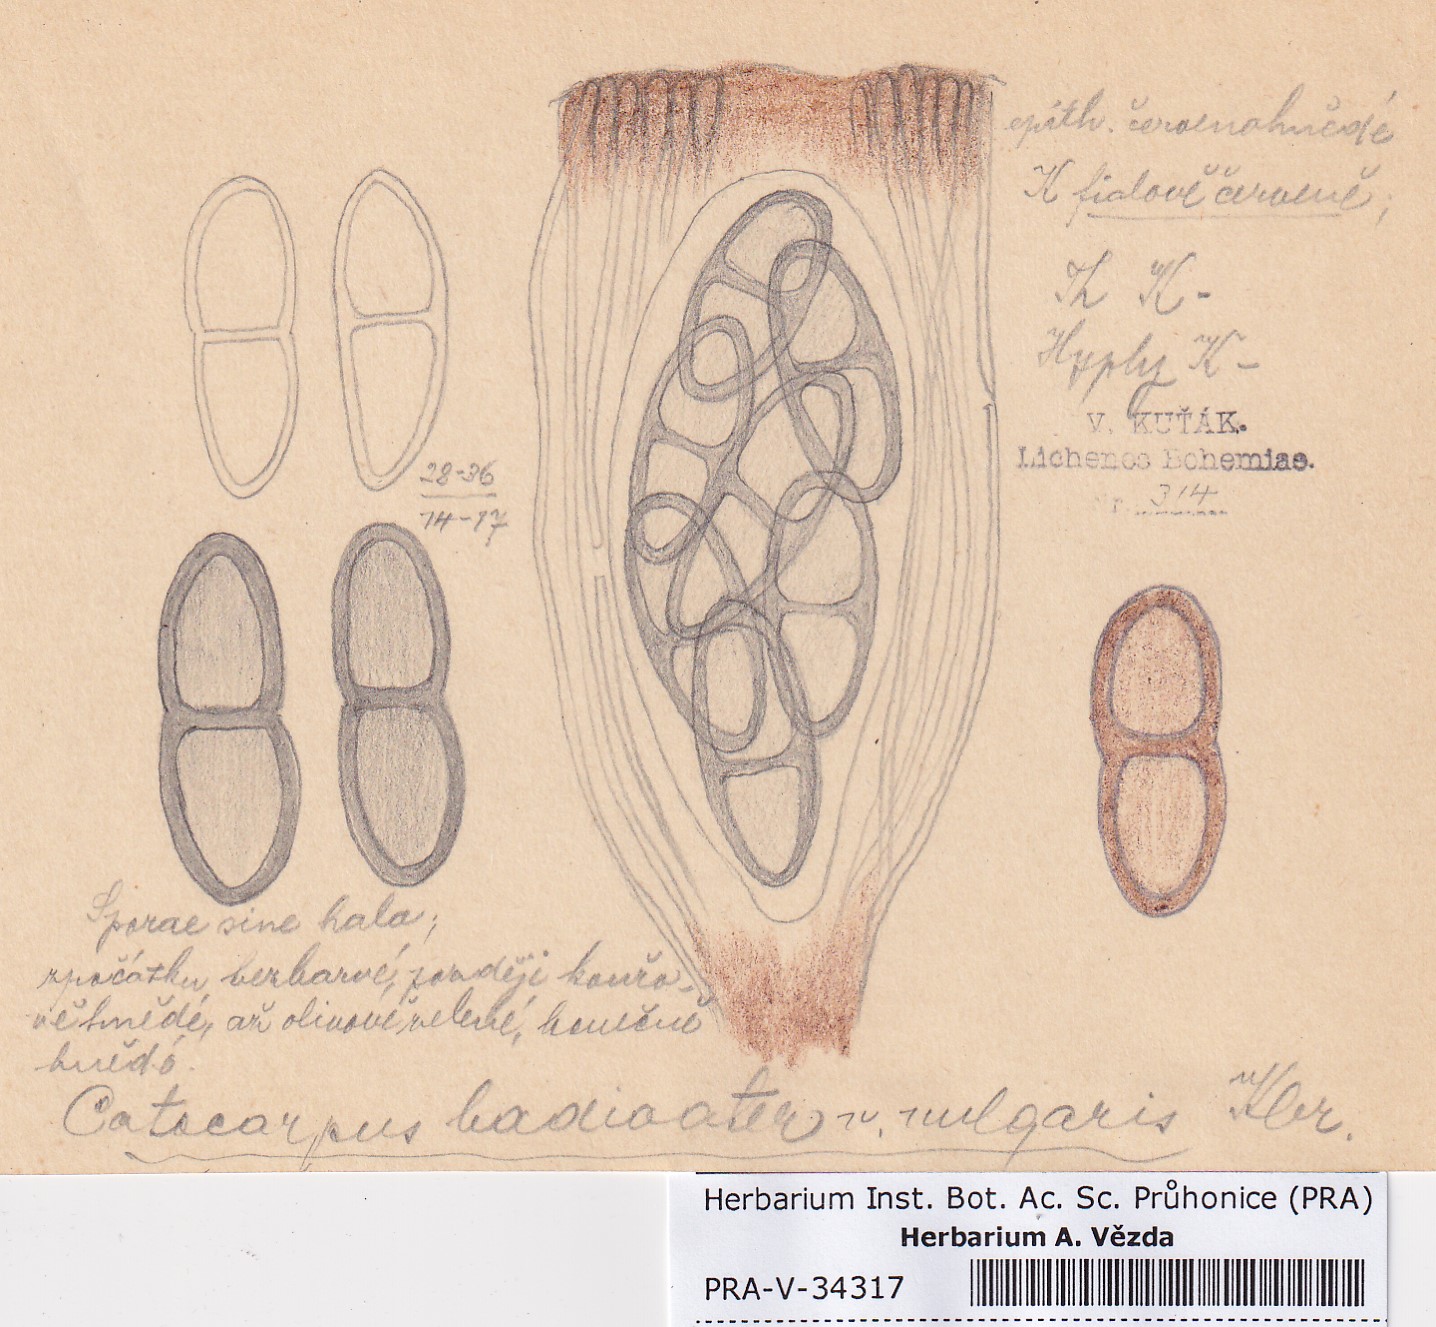 epith. červenohnědé
K fialově červeně;
Th K-
Hyphy K-
V. KUŤÁK.
Lichenes Bohemiae.
Nr. 314
28-36
14-17
Sporae sine halo;
zpočátku bezbarvé, později kouřo-
vě hnědé, až olivově zelené, konečně
hnědé.
Catocarpus badioater v. vulgaris Kbr.
Herbarium Inst. Bot. Ac. Sc. Průhonice (PRA)
Herbarium A. Vězda
PRA-V-34317